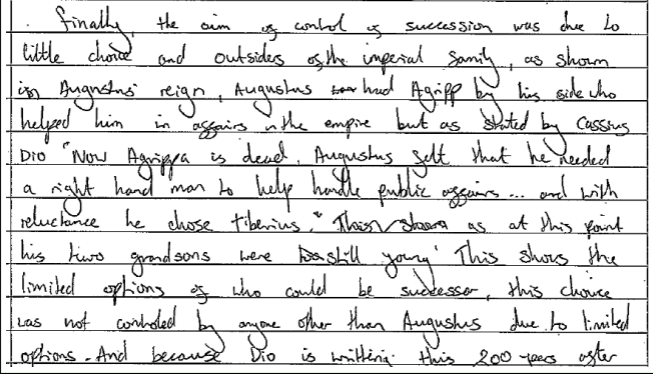 . Finally, the aim of control of succession was due to
little choice and outsiders of the imperial family, as shown
in Augustus' reign, Augustus had Agripp by his side who
helped him in affairs in the empire but as stated by Cassius
Dio "Now Agrippa is dead, Augustus felt that he needed
a right hand man to help handle public affairs... and with
reluctance he chose Tiberius." as at this point
his two grandsons were still young' This shows the
limited options of who could be successor, this choice
was not controled by anyone other than Augustus due to limited
options. And because Dio is writting this 200 years after